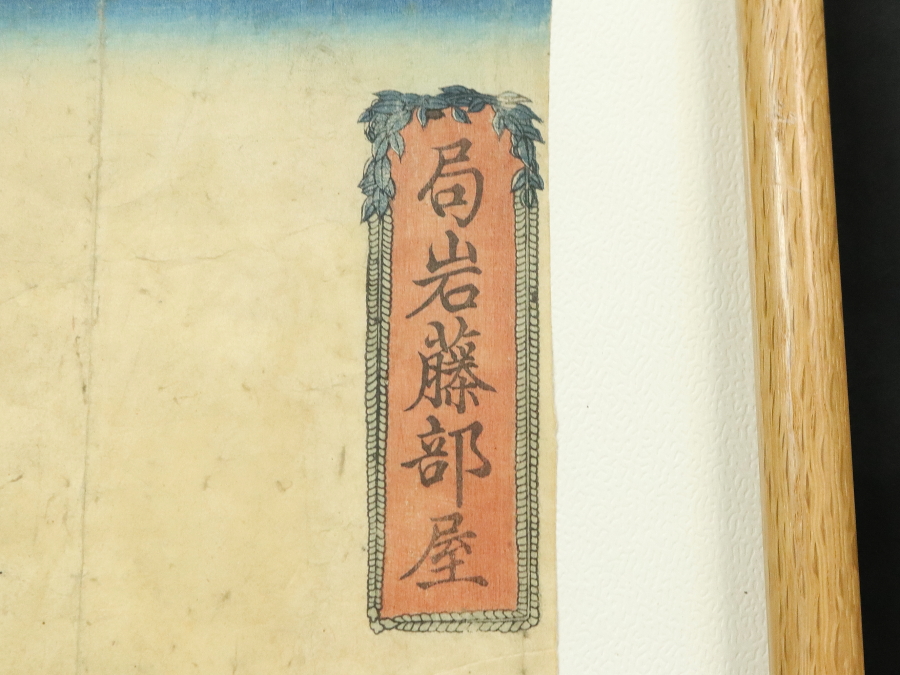 局岩藤部屋